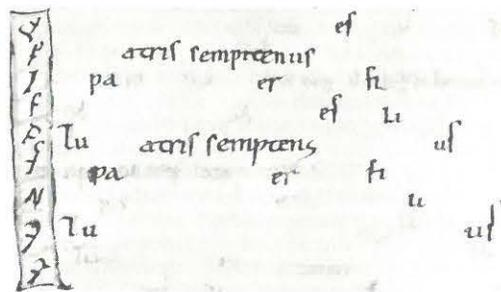 es
atris sempitenus
pa er fi
es li
Tu atris sempitens us
pa er fi
li
Tu us